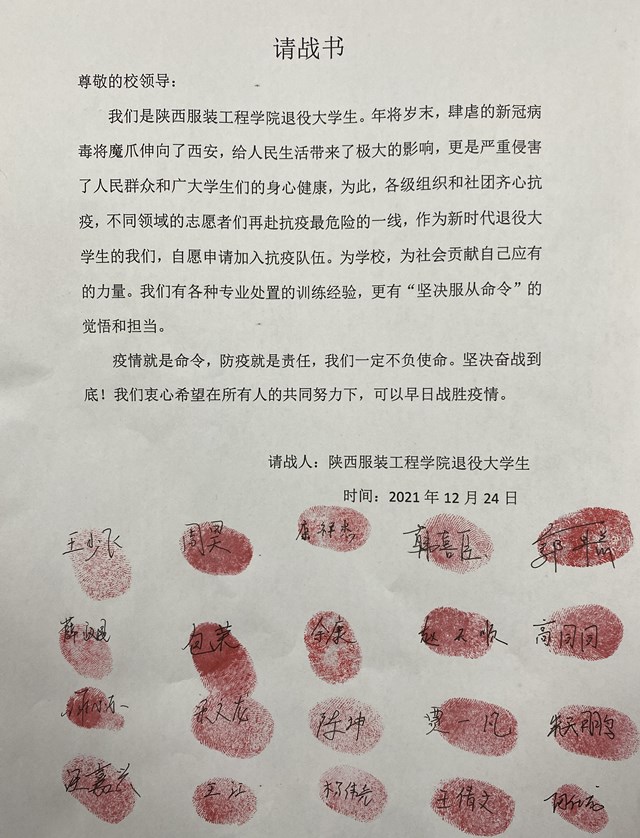 请战书
尊敬的校领导：
我们是陕西服装工程学院退役大学生。年将岁末，肆虐的新冠病
毒将魔爪伸向了西安，给人民生活带来了极大的影响，更是严重侵害
了人民群众和广大学生们的身心健康，为此，各级组织和社团齐心抗
疫，不同领域的志愿者们再赴抗疫最危险的一线，作为新时代退役大
学生的我们，自愿申请加入抗疫队伍。为学校，为社会贡献自己应有
的力量。我们有各种专业处置的训练经验，更有“坚决服从命令”的
觉悟和担当。
疫情就是命令，防疫就是责任，我们一定不负使命。坚决奋战到
底！我们衷心希望在所有人的共同努力下，可以早日战胜疫情。
请战人：陕西服装工程学院退役大学生
时间：2021 年 12 月 24 日
王少飞 周昊 韩喜臣
包荣 余康 赵天顺 高同同
陈坤 贾一凡
王江 杨伟亮 王倩文